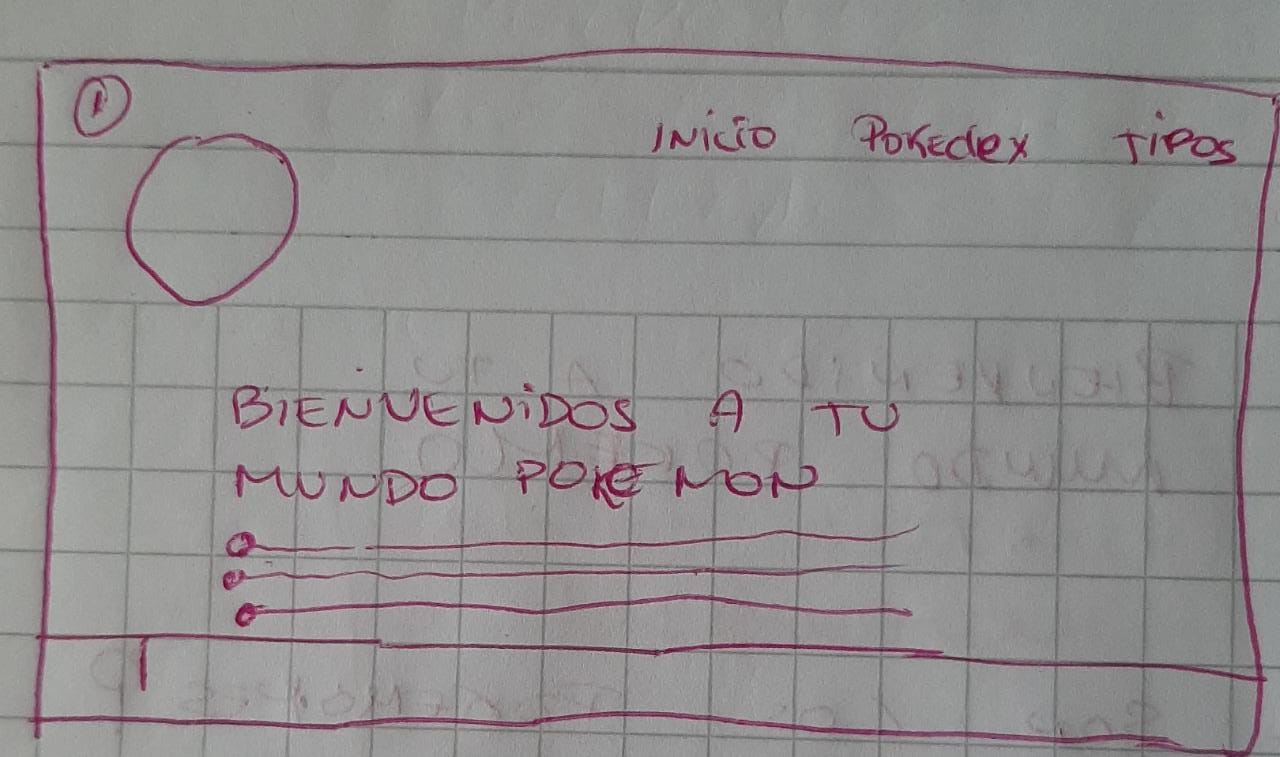 1
INICIO POKEdex TIPOS
BIENVENIDOS A TU
MUNDO POKEMON